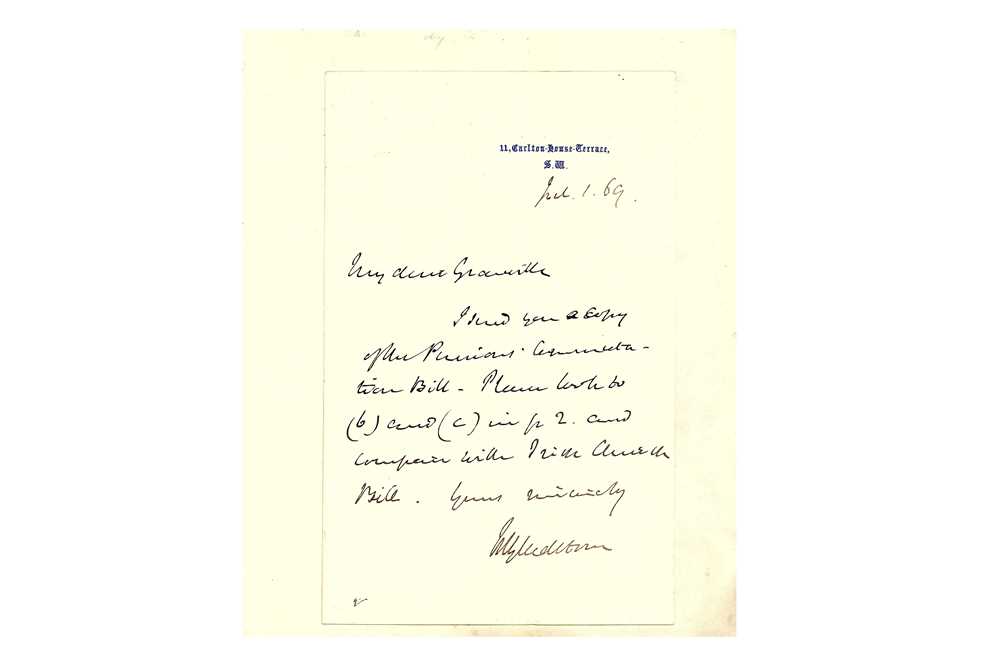 11, Carlton-House-Terrace,
S.W.
Jul. 1. 69.
My dear Granville
I send you a copy
of the Pensions' Commuta-
tion Bill - Please look to
(b) and (c) in p 2. and
compare with Irish Church
Bill. Yours sincerely
WEGladstone